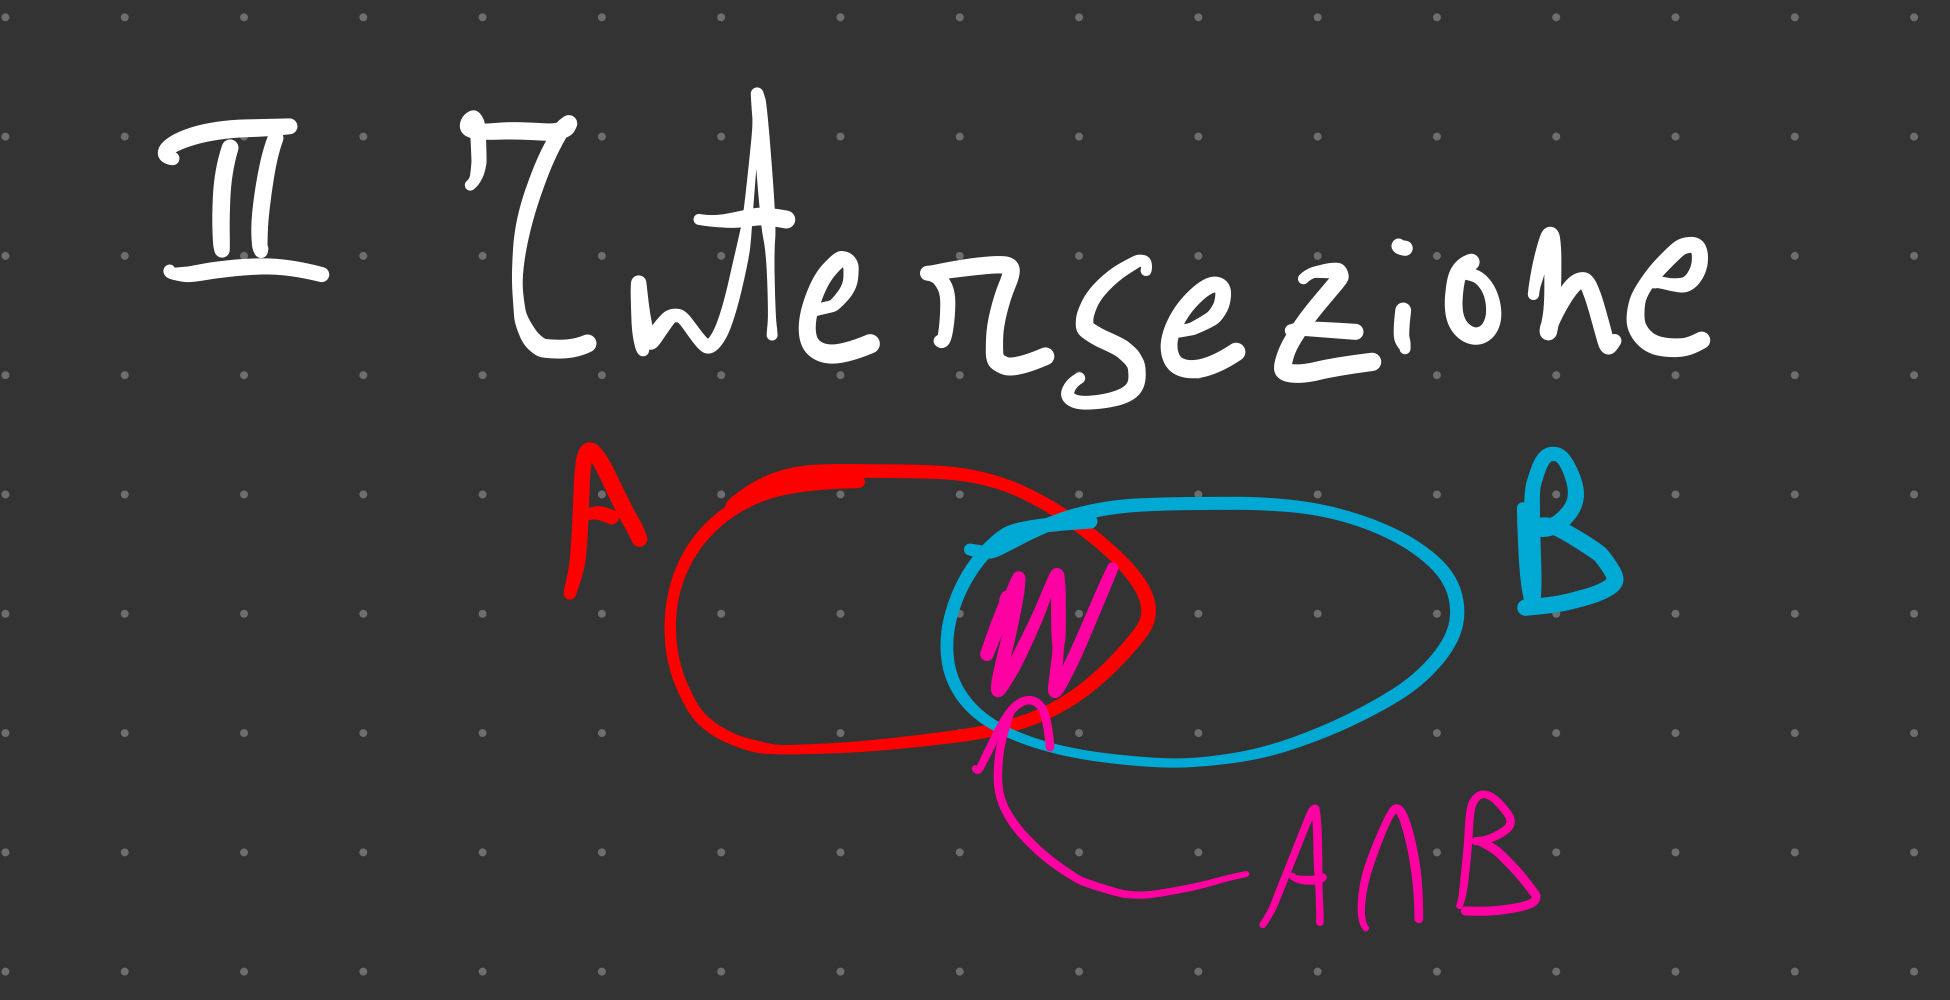 II Intersezione
A B
A∩B